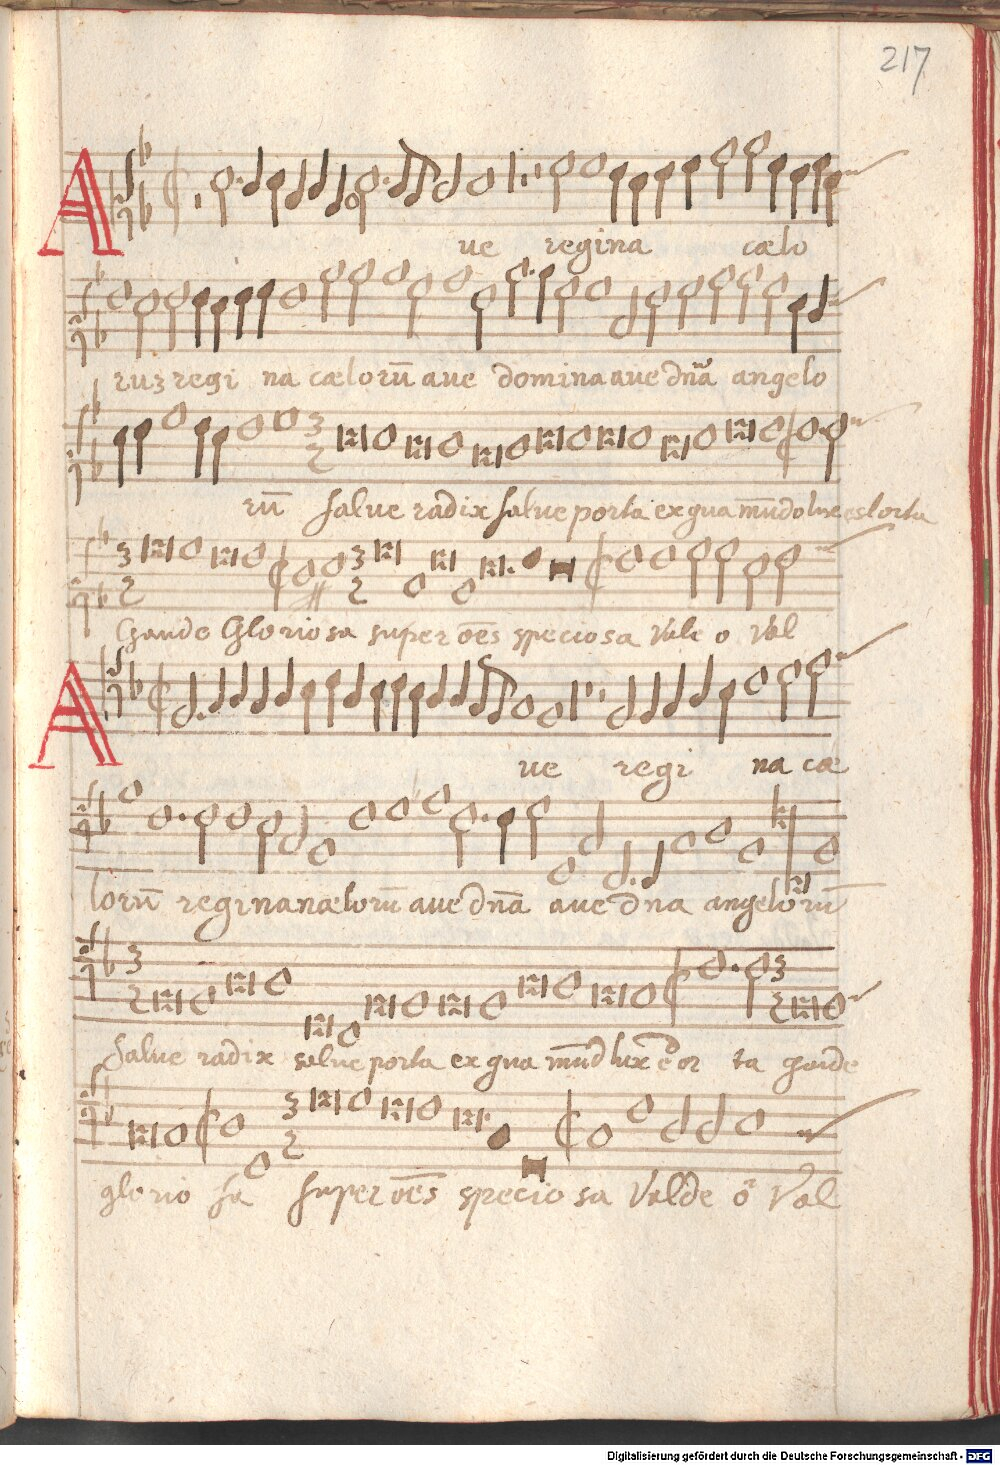 217
A ue regina cælo
ruȝ regi na cælorū aue domina aue dn̄a angelo
rū salue radix salue porta ex qua mūdo lux est orta
Gaude Gloriosa super oēs speciosa Vale o Val
A ue regi na cæ
lorū regina nælorū aue dn̄a aue dn̄a angelorū
Salue radix salue porta ex qua mūd lux ē or ta gaude
glorio sa super oēs specio sa Valde o Val
Digitalisierung gefördert durch die Deutsche Forschungsgemeinschaft - DFG